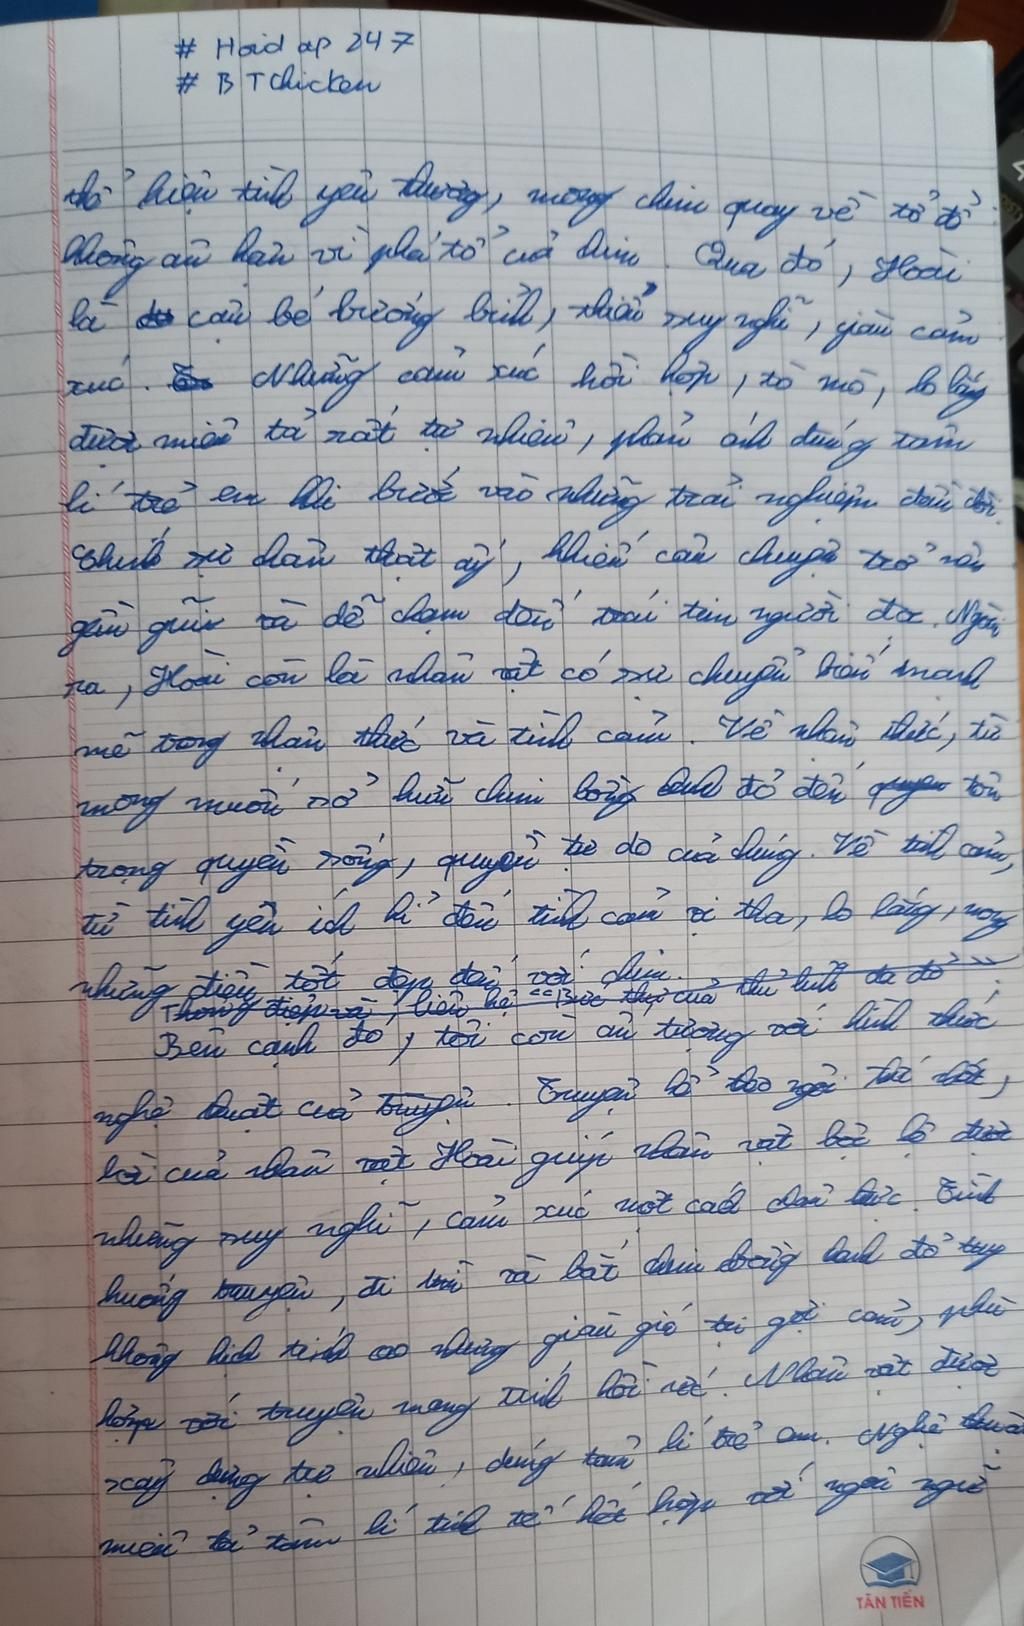 # Hoidap 247
# BTchicken
thể hiện tình yêu thương, mong chim quay về tổ để
không ân hận vì phá tổ của chim. Qua đó, Hoài
là cậu bé bướng bỉnh, thiếu suy nghĩ, giàu cảm
xúc. Những cảm xúc hồi hộp, tò mò, lo lắng
được miêu tả rất tự nhiên, phản ánh đúng tâm
lí trẻ em khi bước vào những trải nghiệm đầu đời.
Chính sự chân thật ấy, khiến câu chuyện trở nên
gần gũi và dễ chạm đến trái tim người đọc. Ngoài
ra, Hoài còn là nhân vật có sự chuyển biến mạnh
mẽ trong nhận thức và tình cảm. Về nhận thức, từ
mong muốn sở hữu chim bồng chanh đỏ đến tôn
trọng quyền sống, quyền tự do của chúng. Về tình cảm,
từ tình yêu ích kỉ đến tình cảm vị tha, lo lắng, mong
những điều tốt đẹp đến với chim.
Thông điệp và, liên hệ "Bức thư của thủ lĩnh da đỏ"
Bên cạnh đó, tôi còn ấn tượng với hình thức
nghệ thuật của truyện. Truyện kể theo ngôi thứ nhất,
lời của nhân vật Hoài giúp nhân vật bộc lộ được
những suy nghĩ, cảm xúc một cách chân thực. Tình
huống truyện, đi và bắt chim bồng chanh đỏ tuy
không kịch tính cao nhưng giàu gợi cảm, phù
hợp với truyện mang tính hồi ức. Nhân vật được
xây dựng tự nhiên, đúng tâm lí trẻ em. Nghệ thuật
miêu tả tâm lí tinh tế kết hợp với ngôn ngữ
TÂN TIẾN